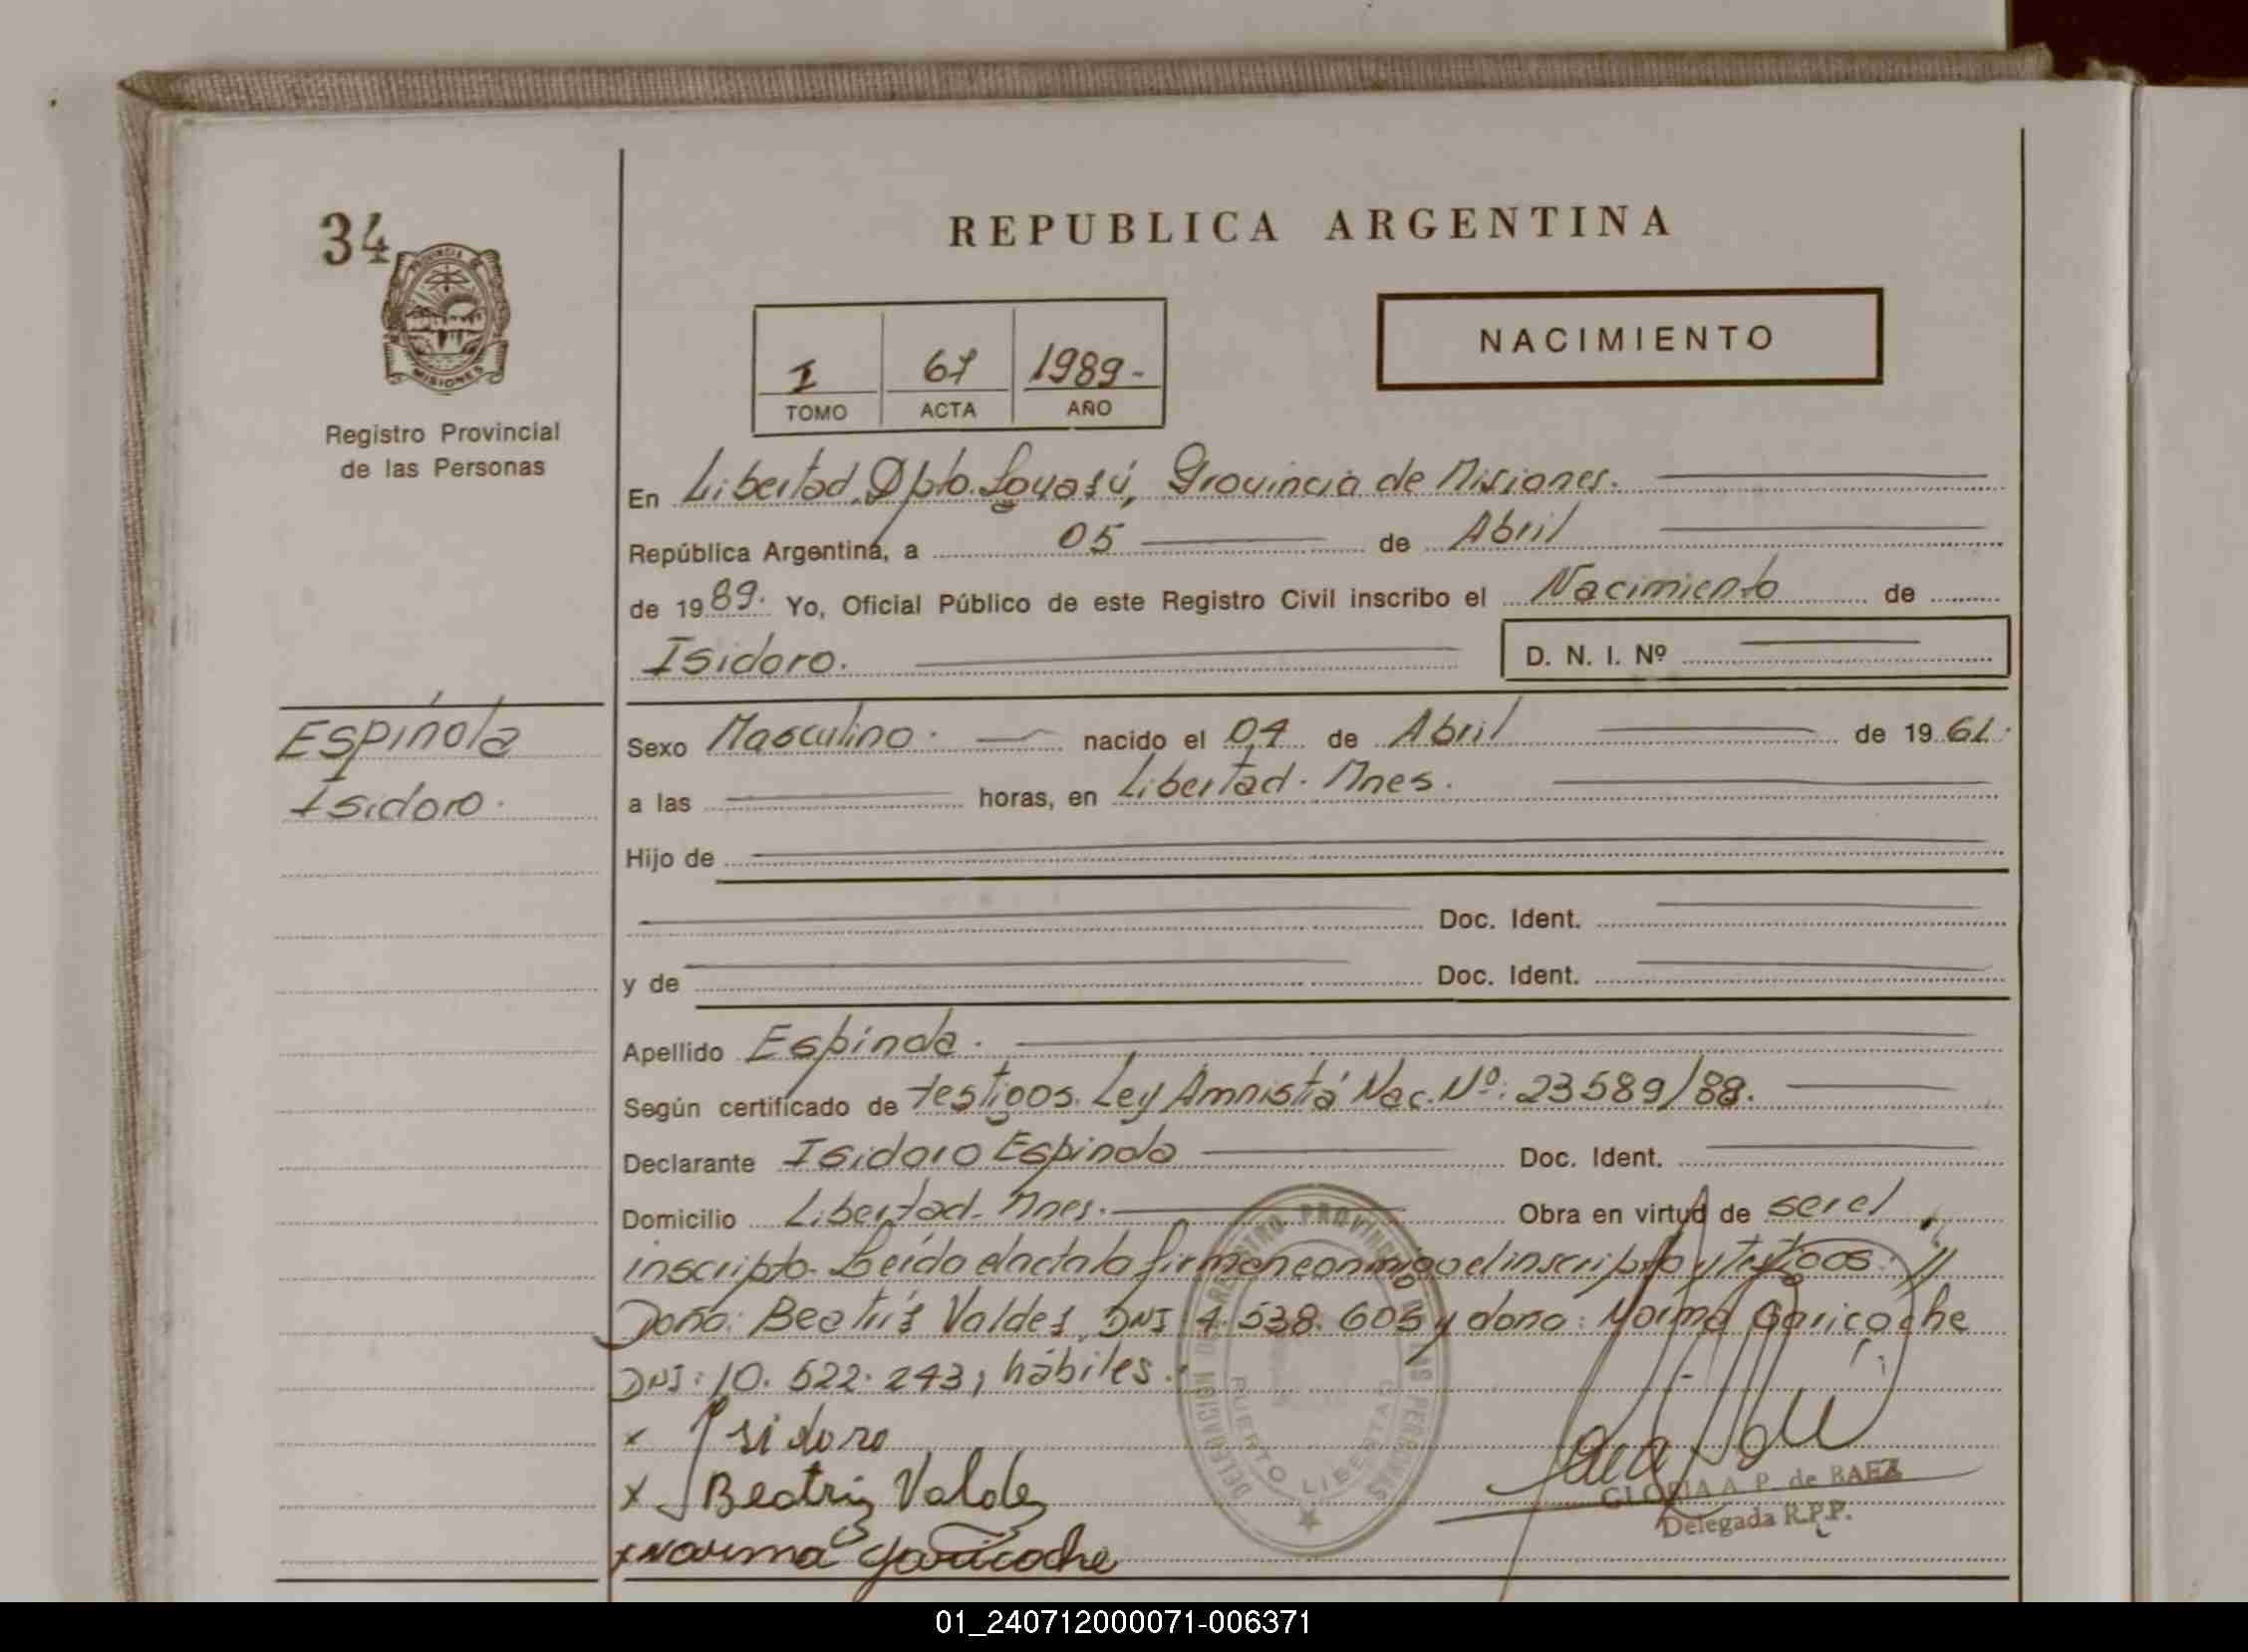 34
PROVINCIA DE
MISIONES
Registro Provincial
de las Personas
REPUBLICA ARGENTINA
I 67 1989-
TOMO ACTA AÑO
NACIMIENTO
En Libertad, Dpto. Iguazú, Provincia de Misiones.
República Argentina, a 05 de Abril
de 1989. Yo, Oficial Público de este Registro Civil inscribo el Nacimiento de
Isidoro.
D. N. I. Nº
Espínola
Isidoro.
Sexo Masculino. nacido el 04 de Abril de 1961.
a las horas, en Libertad. Mnes.
Hijo de
Doc. Ident.
y de Doc. Ident.
Apellido Espínola.
Según certificado de testigos. Ley Amnistía Nac. Nº: 23589/88.
Declarante Isidoro Espínola Doc. Ident.
Domicilio Libertad- Mnes. Obra en virtud de ser el
inscripto. Leída el acta la firman conmigo el inscripto y testigos: //
Doña: Beatrís Valdes, DNI 4.538.605 y doña: Norma Garicoche
DNI: 10.522.243, hábiles.
x Isidoro
x Beatriz Valdez
x Norma Garicoche
DELEGACION DE REGISTRO PROVINCIAL DE LAS PERSONAS
PUERTO LIBERTAD
GLORIA A. P. de BAEZ
Delegada R.P.P.
01_240712000071-006371